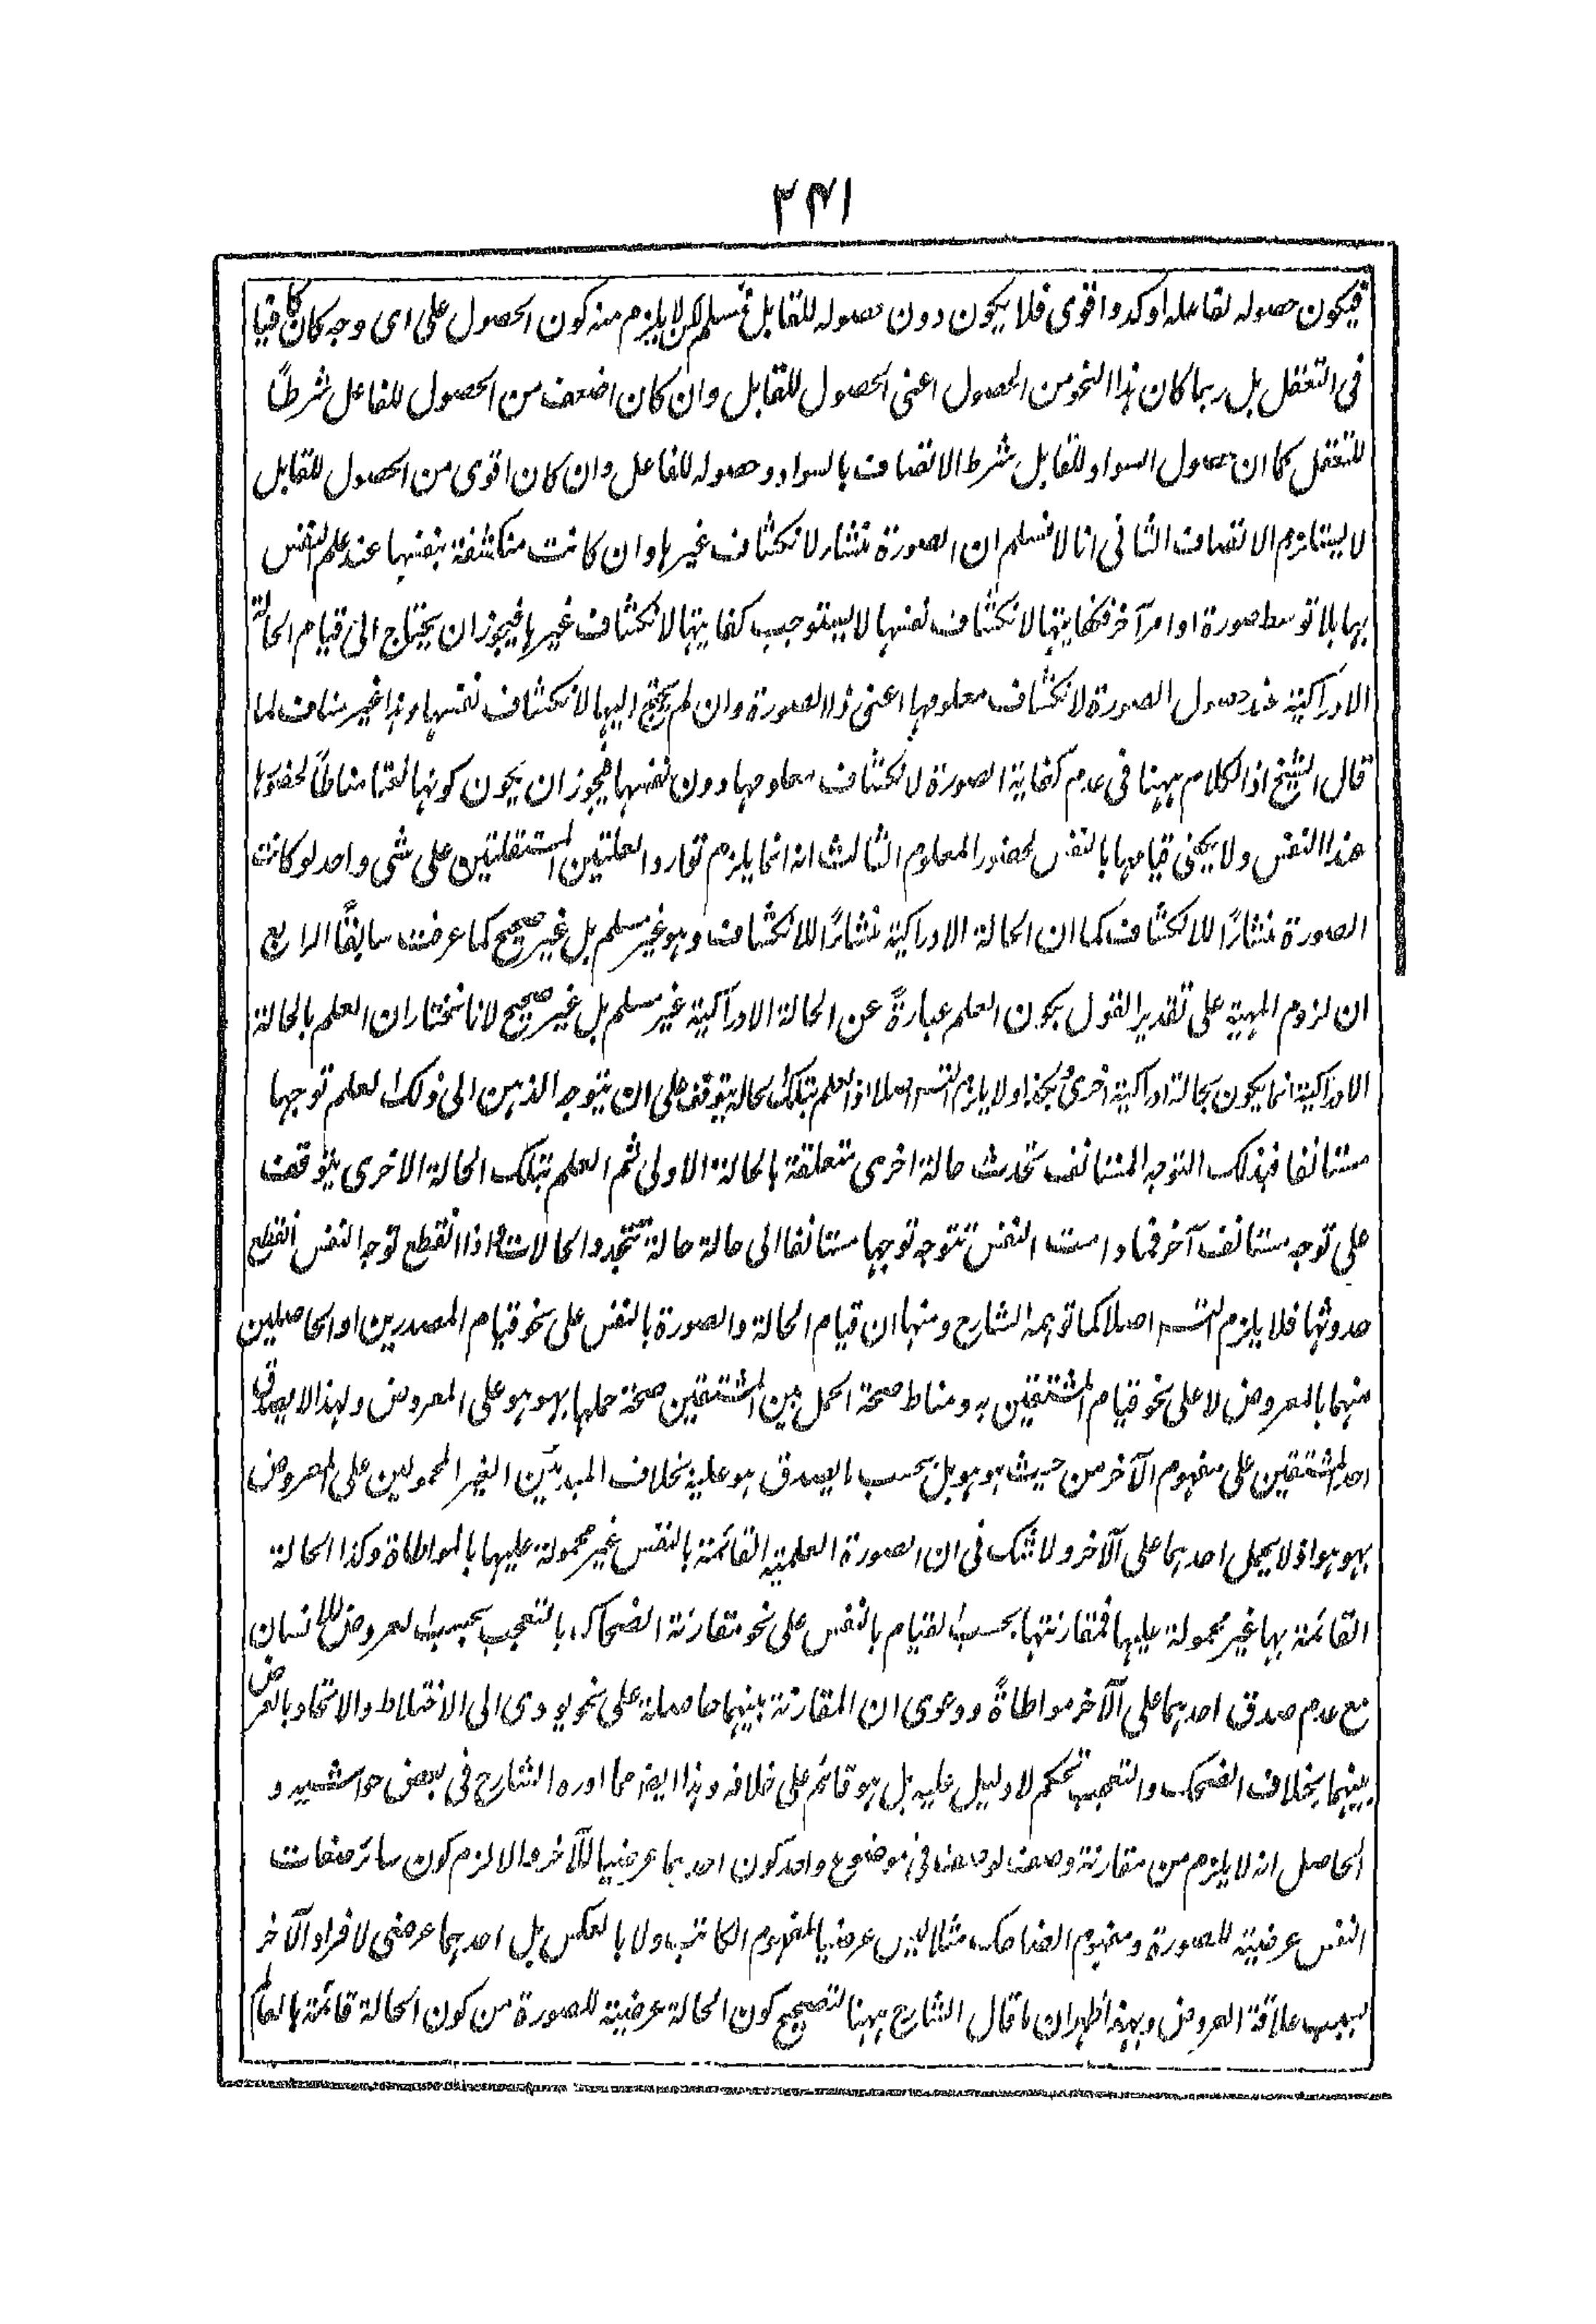 ٣٤١
فيكون حصوله لفاعله اوكد واقوى فلا يكون دون حصوله للقابل فمسلم لكن لا يلزم منه كون الحصول على اى وجه كان كافيا
فى التعقل بل ربما كان هذا النحو من الحصول اعنى الحصول للقابل وان كان اضعف من الحصول للفاعل شرطاً
للتعقل كما ان حصول السواد للقابل شرط الاتصاف بالسواد وحصوله للفاعل وان كان اقوى من الحصول للقابل
لا يستلزم الاتصاف الثانى انا لا نسلم ان الصورة منشأ لانكشاف غيرها وان كانت منكشفة بنفسها عند علم النفس
بها بلا توسط صورة او امر آخر فكفايتها لانكشاف نفسها لا يستوجب كفايتها لانكشاف غيرها فيجوز ان يحتاج الى قيام الحالة
الادراكية عند حصول الصورة لانكشاف معلومها اعنى ذا الصورة وان لم يحتج اليها لانكشاف نفسها وهذا غير مناف لما
قال الشيخ اذ الكلام ههنا فى عدم كفاية الصورة لانكشاف معلومها دون نفسها فيجوز ان يكون كونها لقا مناطاً لحضورها
عند النفس ولا يكفى قيامها بالنفس لحضور المعلوم الثالث انه انما يلزم توارد العلتين المستقلتين على شى واحد لو كانت
الصورة منشأً للانكشاف كما ان الحالة الادراكية منشأً للانكشاف وهو غير مسلم بل غير صحيح كما عرفت سابقًا الرابع
ان لزوم المهية على تقدير القول بكون العلم عبارةً عن الحالة الادراكية غير مسلم بل غير صحيح لانا نختار ان العلم بالحالة
الادراكية انما يكون بحالة ادراكية اخرى وهكذا ولا يلزم التسم اصلا اذ العلم بتلك الحالة يتوقف على ان يتوجه الذهن الى ذلك العلم توجها
مستانفا فبذلك التوجه المستانف تحدث حالة اخرى متعلقة بالحالة الاولى ثم العلم بتلك الحالة الاخرى يتوقف
على توجه مستانف آخر فما دامت النفس تتوجه توجها مستانفا الى حالة حالة تتجدد الحالات واذا انقطع توجه النفس انقطع
حدوثها فلا يلزم التسم اصلا كما توهمه الشارح ومنها ان قيام الحالة والصورة بالنفس على نحو قيام المصدرين او الحاصلين
منهما بالمعروض لا على نحو قيام المشتقين به ومناط صحة الحمل بين المشتقين صحة حملهما بهو هو على المعروض ولهذا لا يصدق
احد المشتقين على مفهوم الآخر من حيث هو هو بل بحسب ما يصدق هو عليه بخلاف المبدئين الغير المحمولين على المعروض
بهو هو اذ لا يحمل احدهما على الآخر ولا شك فى ان الصورة العلمية القائمة بالنفس غير محمولة عليها بالمواطاة وكذا الحالة
القائمة بها غير محمولة عليها فمقارنتها بحسب القيام بالنفس على نحو مقارنة الضحاك بالتعجب بحسب العروض للانسان
مع عدم صدق احدهما على الآخر مواطاةً ودعوى ان المقارنة بينهما حاصلة على نحو يودى الى الاختلاط والاتحاد بالعرض
بينهما بخلاف الضحك والتعجب تحكم لا دليل عليه بل هو قائم على خلافه وهذا ايضا مما اورده الشارح فى بعض حواشيه و
الحاصل انه لا يلزم من مقارنة وصف لوصف فى موضوع واحد كون احدهما عرضيا للآخر والا لزم كون سائر صفات
النفس عرضية للصورة ومفهوم الضاحك مثلا ليس عرضيا لمفهوم الكاتب ولا بالعكس بل احدهما عرضى لافراد الآخر
بسبب علاقة العروض وبهذا ظهر ان ما قال الشارح ههنا لتصحيح كون الحالة عرضية للصورة من كون الحالة قائمة بالعلم